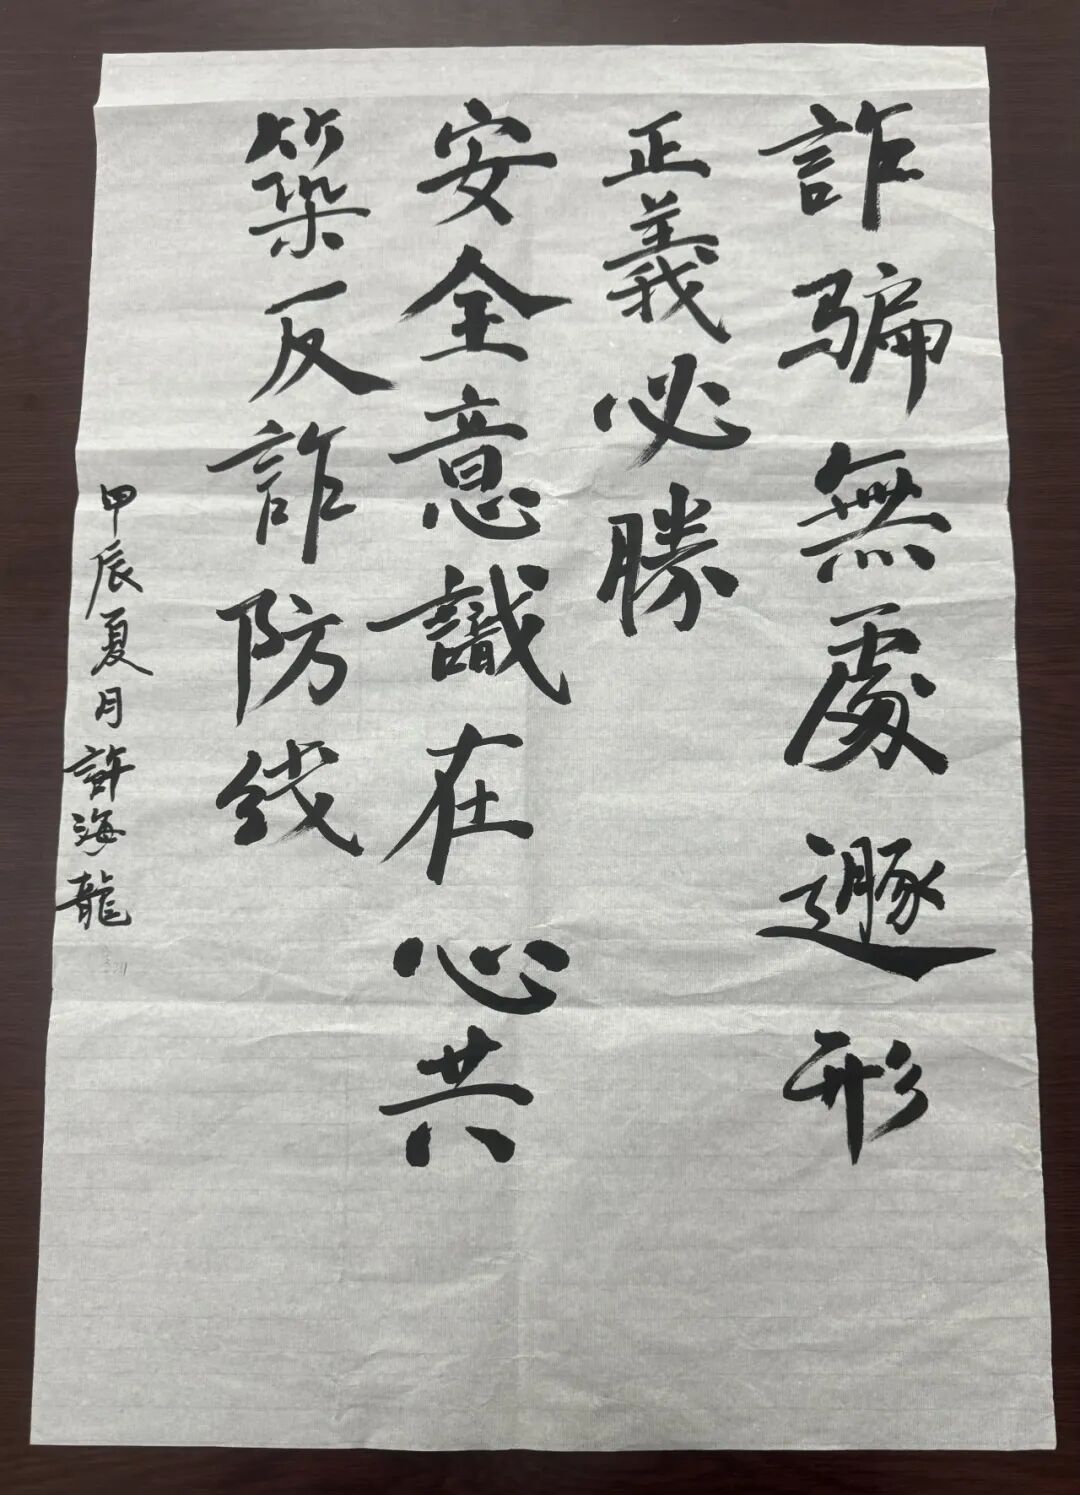 詐骗無處遯形
正義必勝
安全意識在心共
築反詐防线
甲辰夏月許海龍